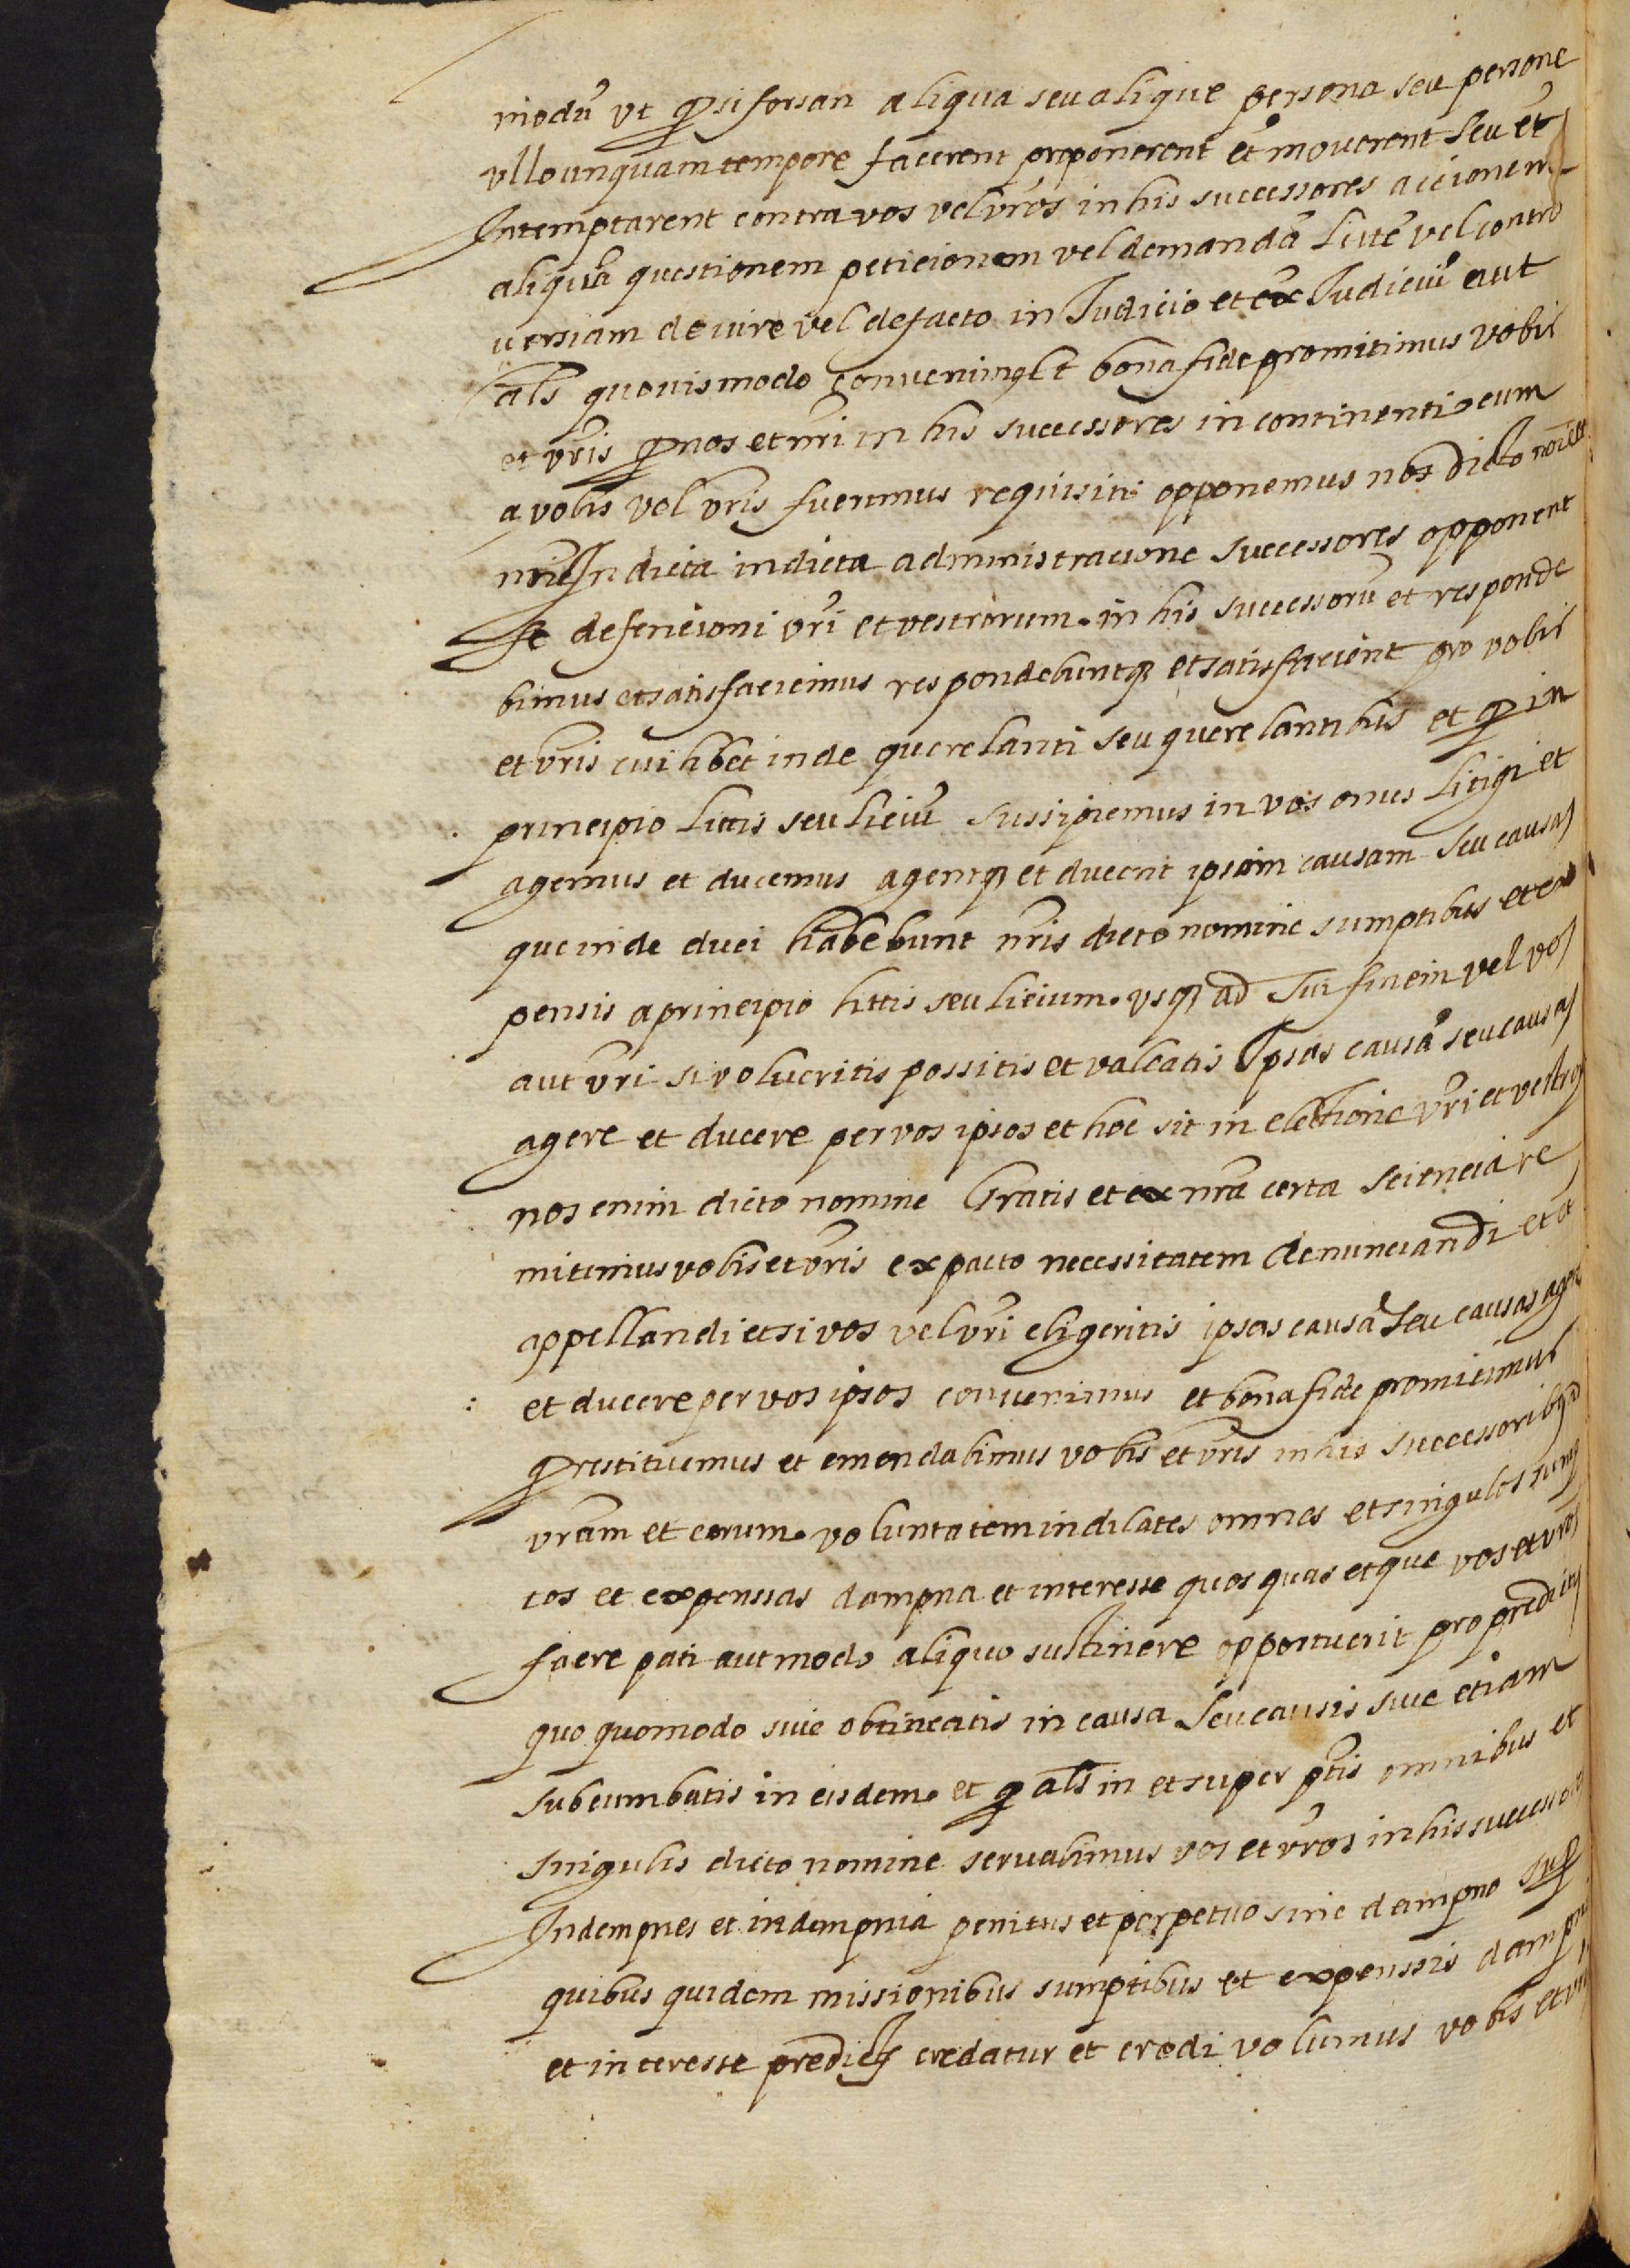 modũ vt ꝙ si forsan aliqua seu alique persona seu persone
vllo unquam tempore facerent proponerent et mouerent seu et̃
Intemptarent contra vos vel vr̃os in his successores accionem
aliquã questionem peticionem vel demandã Littẽ vel contro
uersiam de iure vel de facto in Iudicio et ex̃ Iudiciũ aut
als̃ quouis modo conuenimꝰ et bona fide promitimus vobis
et vr̃is ꝙ nos et nr̃i in his successores in continenti cum
a vobis vel vr̃is fuerimus requisiti opponemus nos dicto noĩe
nr̃iqꝫ in dicta indicta administracione successores opponent
se defencioni vr̃i et vestrorum in his successorũ et responde
bimus et satisfaciemus respondebuntqꝫ et satisfacient pro vobis
et vr̃is cuilibet inde querelanti seu querelantibus et ꝙ in
principio littis seu liciũ suscipiemus in vos onus litigii et
agemus et ducemus agentqꝫ et ducent ipsam causam seu causas
que inde duci habebunt nr̃is dicto nomine sumptibus et ex
pensis a principio littis seu licium vsqꝫ ad sui finem vel vos
aut vr̃i si volueritis possitis et valeatis Ipsas causã seu causas
agere et ducere per vos ipsos et hoc sit in electione vr̃i et vestroꝝ
nos enim dicto nomine Gratis et ex nr̃a certa sciencia re
mitimus vobis et vr̃is ex pacto necessitatem denunciandi et et
appellandi et si vos vel vr̃i eligeritis ipsas causã seu causas agere
et ducere per vos ipsos conuenimus et bona fide promitimus
ꝙ restituemus et emendabimus vobis et vr̃is in his successoribꝫ ad
vr̃am et eorum voluntatem indilate omnes et singulos sump
tos et expenssas dampna et interesse quos quas et que vos et vr̃os
facere pati aut modo aliquo sustinere opportuerit pro predictis
quo quomodo siue obtineatis in causa seu causis siue etiam
subcumbatis in eisdem et ꝙ als̃ in et super p̃tis omnibus et
singulis dicto nomine seruabimus vos et vr̃os in his successores
Indempnes et indempnia penitus et perpetuo sine dampno suꝑ
quibus quidem missionibus sumptibus et expenssis dampni
et interesse predictꝭ credatur et credi volumus vobis et vr̃is